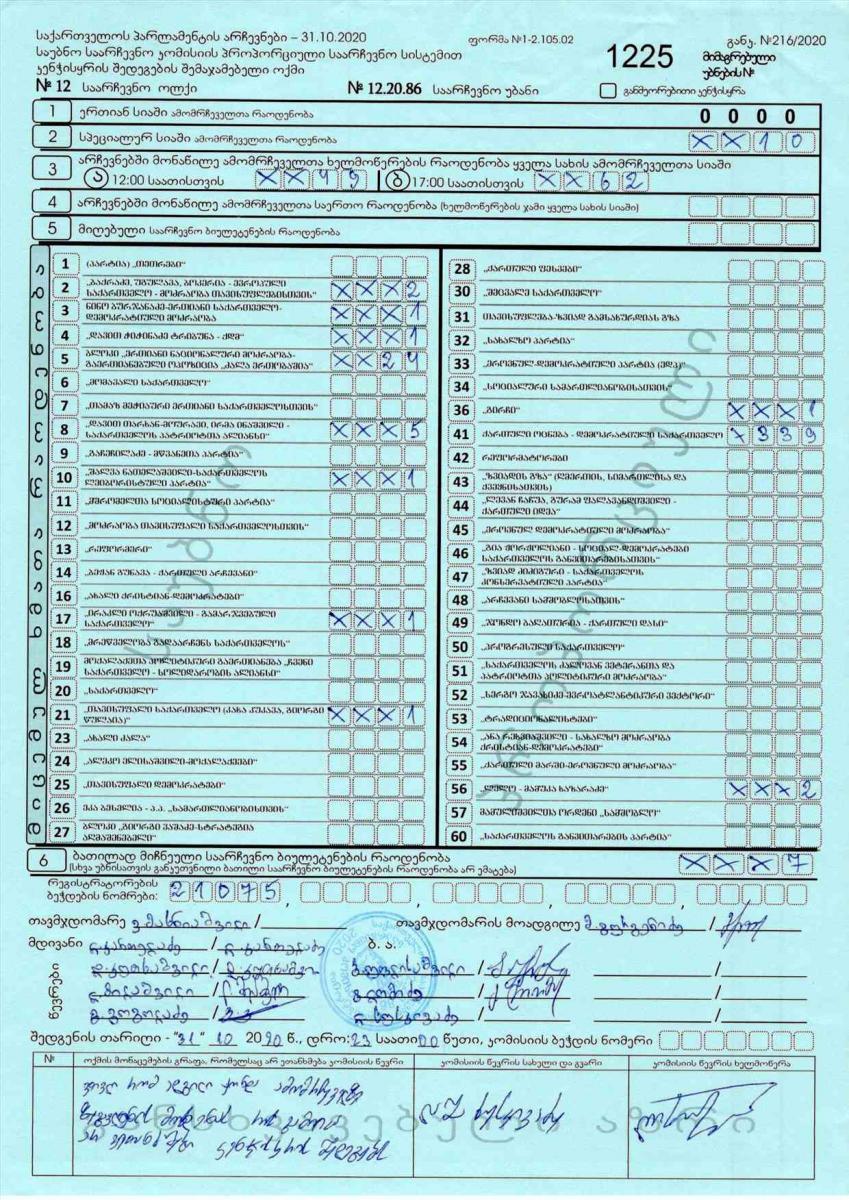 საქართველოს პარლამენტის არჩევნები – 31.10.2020
ფორმა №1-2.105.02
განკ. №216/2020
საუბნო საარჩევნო კომისიის პროპორციული საარჩევნო სისტემით
1225
მიმაგრებული
კენჭისყრის შედეგების შემაჯამებელი ოქმი
უბნების №
№ 12 საარჩევნო ოლქი № 12.20.86 საარჩევნო უბანი განმეორებითი კენჭისყრა
1 ერთიან სიაში ამომრჩეველთა რაოდენობა 0 0 0 0
2 სპეციალურ სიაში ამომრჩეველთა რაოდენობა X X 1 0
3 არჩევნებში მონაწილე ამომრჩეველთა ხელმოწერების რაოდენობა ყველა სახის ამომრჩეველთა სიაში
ა 12:00 საათისთვის X X 4 9 ბ 17:00 საათისთვის X X 6 2
4 არჩევნებში მონაწილე ამომრჩეველთა საერთო რაოდენობა (ხელმოწერების ჯამი ყველა სახის სიაში)
5 მიღებული საარჩევნო ბიულეტენების რაოდენობა
1 (პარტია) „თეთრები“
2 „ბაქრაძე, უგულავა, ბოკერია - ევროპული
საქართველო - მოძრაობა თავისუფლებისთვის“ X X X 2
3 ნინო ბურჯანაძე-ერთიანი საქართველო-
დემოკრატიული მოძრაობა X X X 1
4 „დავით ჭიჭინაძე ტრიბუნა - ქდმ“ X X X 1
5 ბლოკი „ერთიანი ნაციონალური მოძრაობა-
გაერთიანებული ოპოზიცია „ძალა ერთობაშია“ X X 2 4
6 „მომავალი საქართველო“
7 „თამაზ მეჭიაური ერთიანი საქართველოსთვის“
8 „დავით თარხან-მოურავი, ირმა ინაშვილი -
საქართველოს პატრიოტთა ალიანსი“ X X X 5
9 „გაჩეჩილაძე - მწვანეთა პარტია“
10 „შალვა ნათელაშვილი-საქართველოს
ლეიბორისტული პარტია“ X X X 1
11 „მშრომელთა სოციალისტური პარტია“
12 „მოძრაობა თავისუფალი საქართველოსთვის“
13 „რეფორმერი“
14 „ბეჟან გუნავა - ქართული არჩევანი“
16 „ახალი ქრისტიან-დემოკრატები“
17 „ირაკლი ოქრუაშვილი - გამარჯვებული
საქართველო“ X X X 1
18 „მრეწველობა გადაარჩენს საქართველოს“
19 მოქალაქეთა პოლიტიკური გაერთიანება „ჩვენი
საქართველო - სოლიდარობის ალიანსი“
20 „საქართველო“
21 „თავისუფალი საქართველო (კახა კუკავა, გიორგი
წულაია)“ X X X 1
23 „ახალი ძალა“
24 „ალეკო ელისაშვილი-მოქალაქეები“
25 „თავისუფალი დემოკრატები“
26 ეკა ბესელია - პ.პ. „სამართლიანობისთვის“
27 ბლოკი „გიორგი ვაშაძე-სტრატეგია
აღმაშენებელი“
28 „ქართული ფესვები“
30 „შეცვალე საქართველო“
31 თავისუფლება-ზვიად გამსახურდიას გზა
32 „სახალხო პარტია“
33 „ეროვნულ-დემოკრატიული პარტია (ედპ)“
34 „სოციალური სამართლიანობისათვის“
36 „გირჩი“ X X X 1
41 ქართული ოცნება - დემოკრატიული საქართველო X 3 3 9
42 რეფორმატორები
43 „ზვიადის გზა“ (ღმერთის, სიმართლისა და
ქვეყნისათვის)
44 „ლევან ჩაჩუა, გურამ ფალავანდიშვილი -
ქართული იდეა“
45 „ეროვნულ დემოკრატიული მოძრაობა“
46 „გია ჟორჟოლიანი - სოციალ-დემოკრატები
საქართველოს განვითარებისათვის“
47 „ზვიად ძიძიგური - საქართველოს
კონსერვატიული პარტია“
48 „არჩევანი სამშობლოსათვის“
49 „ჯონდო ბაღათურია - ქართული დასი“
50 „პროგრესული საქართველო“
51 „საქართველოს ძალოვან ვეტერანთა და
პატრიოტთა პოლიტიკური მოძრაობა“
52 „სერგო ჯავახიძე-ევროატლანტიკური ვექტორი“
53 „ტრადიციონალისტები“
54 „ანა რეხვიაშვილი - სახალხო მოძრაობა
ქრისტიან-დემოკრატები“
55 „ქართული მარში-ეროვნული მოძრაობა“
56 „ლელო - მამუკა ხაზარაძე“ X X X 2
57 მამულიშვილთა ორდენი „სამშობლო“
60 „საქართველოს განვითარების პარტია“
საუბნო
პროპორციული
6 ბათილად მიჩნეული საარჩევნო ბიულეტენების რაოდენობა X X X 7
(სხვა უბნისათვის განკუთვნილი ბათილი საარჩევნო ბიულეტენების რაოდენობა არ ემატება)
რეგისტრატორების
ბეჭდების ნომრები: 2 1 0 7 5
თავმჯდომარე თავმჯდომარის მოადგილე
მდივანი ბ. ა.
წევრები
შედგენის თარიღი - "31" 10 2020 წ., დრო: 23 საათი 00 წუთი, კომისიის ბეჭდის ნომერი
№ ოქმის მონაცემების გრაფა, რომელსაც არ ეთანხმება კომისიის წევრი კომისიის წევრის სახელი და გვარი კომისიის წევრის ხელმოწერა